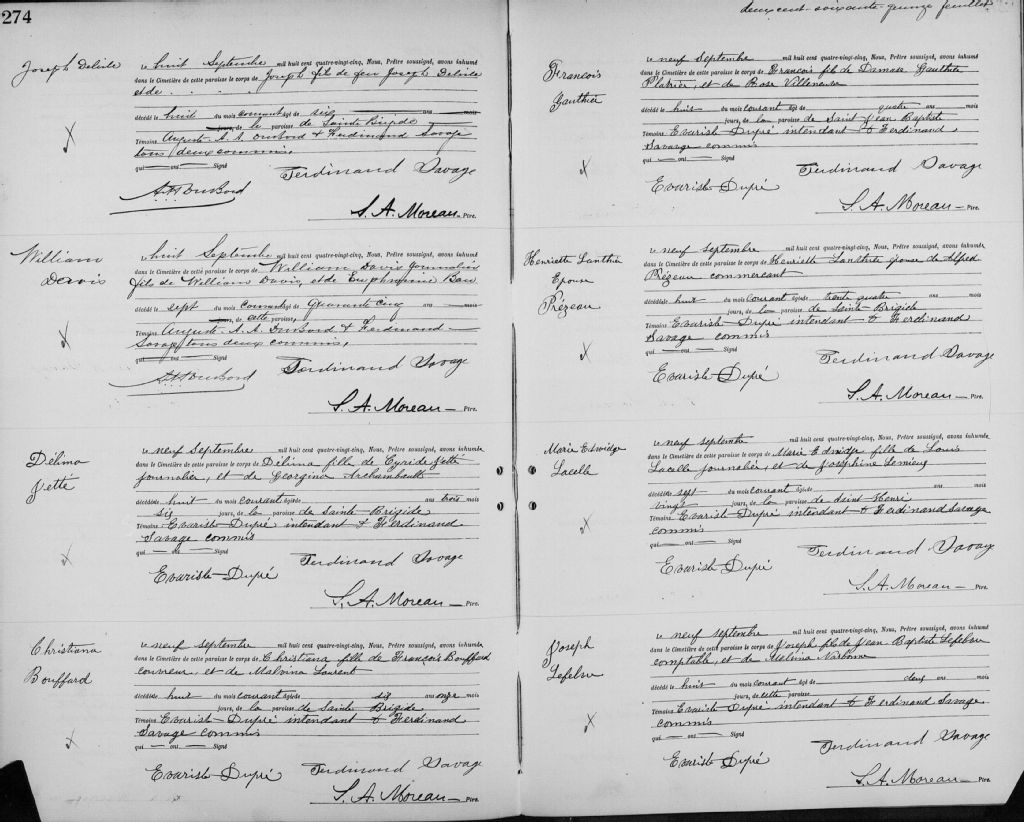 274
Joseph Delisle
le huit Septembre mil huit cent quatre-vingt-cinq, Nous, Prêtre soussigné, avons inhumé
dans le Cimetière de cette paroisse le corps de Joseph fils de feu Joseph Delisle
et de
décédé le huit du mois courant âgé de six ans mois
jours, de la paroisse de Sainte Brigide
Témoins Auguste A. A. DuBord & Ferdinand Savage
tous deux commis,
qui — ont — Signé
Ferdinand Savage
A A DuBord
S. A. Moreau — Ptre.
William
Davis
le huit Septembre mil huit cent quatre-vingt-cinq, Nous, Prêtre soussigné, avons inhumé
dans le Cimetière de cette paroisse le corps de William Davis journalier
fils de William Davis et de Euphrosine
décédé le sept du mois Courant âgé de Quarante cinq ans mois
jours, de cette paroisse,
Témoins Auguste A. A. DuBord & Ferdinand
Savage tous deux commis,
qui — ont — Signé
Ferdinand Savage
A A DuBord
S. A. Moreau — Ptre.
Délima
Jette
le neuf Septembre mil huit cent quatre-vingt-cinq, Nous, Prêtre soussigné, avons inhumé
dans le Cimetière de cette paroisse le corps de Délima fille de Cyride Jetté
journalier, et de Georgina Archambault
décédée huit du mois courant âgée de ans trois mois
six jours, de la paroisse de Sainte Brigide
Témoins Evariste Dupré intendant & Ferdinand
Savage commis
qui — ont — Signé
Ferdinand Savage
Evariste Dupré
S. A. Moreau — Ptre.
Christiana
Bouffard
le neuf septembre mil huit cent quatre-vingt-cinq, Nous, Prêtre soussigné, avons inhumé
dans le Cimetière de cette paroisse le corps de Christiana fille de François Bouffard
couvreur, et de Malvina Laurent
décédée huit du mois courant âgée de dix ans onze mois
jours, de la paroisse de Sainte Brigide
Témoins Evariste Dupré intendant & Ferdinand
Savage commis
qui — ont — Signé
Evariste Dupré Ferdinand Savage
S. A. Moreau — Ptre.
deux cent soixante quinze feuillet
François
Gauthier
le neuf septembre mil huit cent quatre-vingt-cinq, Nous, Prêtre soussigné, avons inhumé
dans le Cimetière de cette paroisse le corps de François fils de Damase Gauthier
Platrier, et de Rose Villeneuve
décédé le huit du mois courant âgé de quatre ans mois
jours, de la paroisse de Saint Jean Baptiste
Témoins Evariste Dupré intendant & Ferdinand
Savage commis
qui — ont — Signé
Ferdinand Savage
Evariste Dupré
S. A. Moreau — Ptre.
Henriette Lanthier
Epouse
Prézeau
le neuf septembre mil huit cent quatre-vingt-cinq, Nous, Prêtre soussigné, avons inhumé
dans le Cimetière de cette paroisse le corps de Henriette Lanthier épouse de Alfred
Prézeau commercant
décédée huit du mois courant âgée de trente quatre ans mois
jours, de la paroisse de Sainte Brigide
Témoins Evariste Dupré intendant & Ferdinand
Savage commis
qui — ont — Signé
Ferdinand Savage
Evariste Dupré
S. A. Moreau — Ptre.
Marie Edwidge
Lacelle
le neuf septembre mil huit cent quatre-vingt-cinq, Nous, Prêtre soussigné, avons inhumé
dans le Cimetière de cette paroisse le corps de Marie Edwidge fille de Louis
Lacelle journalier, et de Joséphine Lemieux
décédée sept du mois courant âgée de ans mois
vingt jours, de la paroisse de Saint Henri
Témoins Evariste Dupré intendant & Ferdinand Savage
commis
qui — ont — Signé
Ferdinand Savage
Evariste Dupré
S. A. Moreau — Ptre.
Joseph
Lefebvre
le neuf septembre mil huit cent quatre-vingt-cinq, Nous, Prêtre soussigné, avons inhumé
dans le Cimetière de cette paroisse le corps de Joseph fils de Jean Baptiste Lefebvre
comptable, et de Mélina Narbonne
décédé le huit du mois courant âgé de deux ans mois
jours, de cette paroisse
Témoins Evariste Dupré intendant & Ferdinand Savage
commis
qui — ont — Signé
Ferdinand Savage
Evariste Dupré
S. A. Moreau — Ptre.